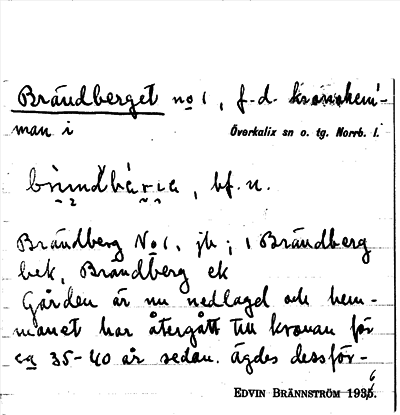 Brändberget no 1, f.d. kronohem-
man i Överkalix sn o. tg. Norrb. l.
bf. n.
Brändberg No 1. jb; 1 Brändberg
lek, Brändberg ek
Gården är nu nedlagd och hem-
manet har återgått till kronan för
ca 35-40 år sedan. Ägdes dessför-
EDVIN BRÄNNSTRÖM 1936.